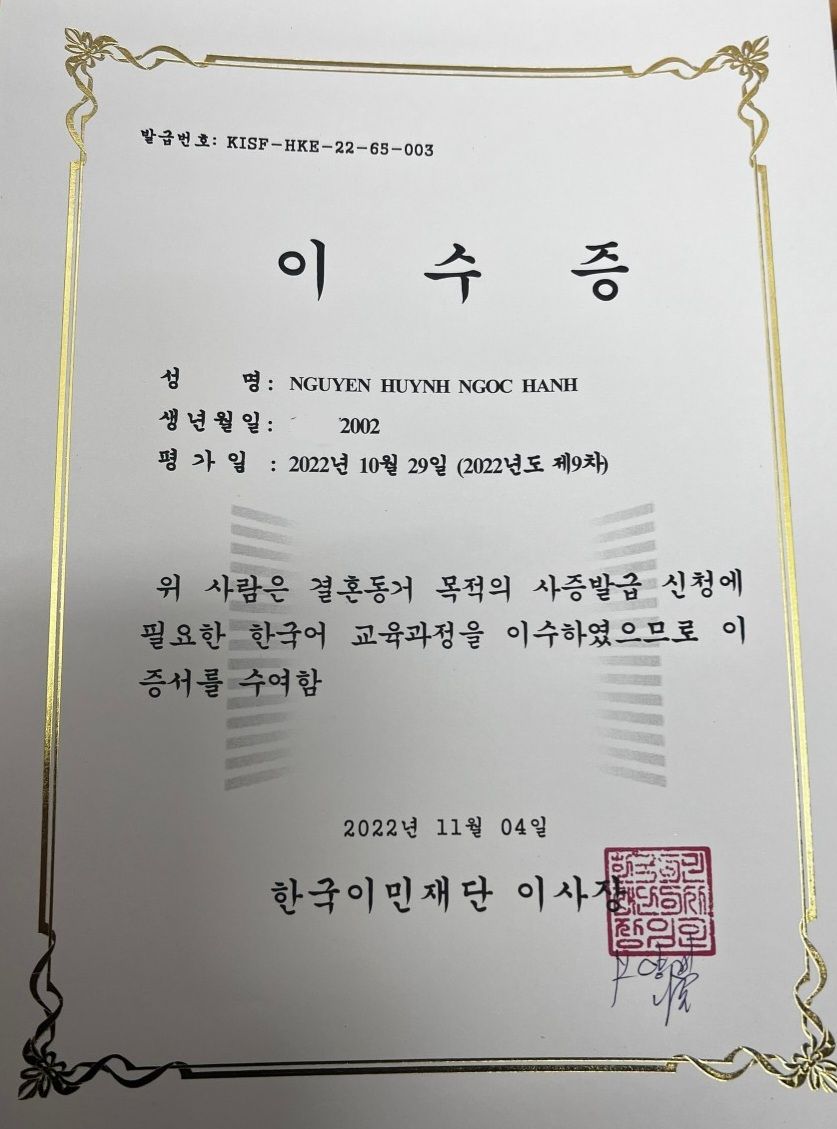 발급번호: KISF-HKE-22-65-003
이 수 증
성 명: NGUYEN HUYNH NGOC HANH
생년월일: 2002
평 가 일 : 2022년 10월 29일 (2022년도 제9차)
위 사람은 결혼동거 목적의 사증발급 신청에
필요한 한국어 교육과정을 이수하였으므로 이
증서를 수여함
2022년 11월 04일
한국이민재단 이사장